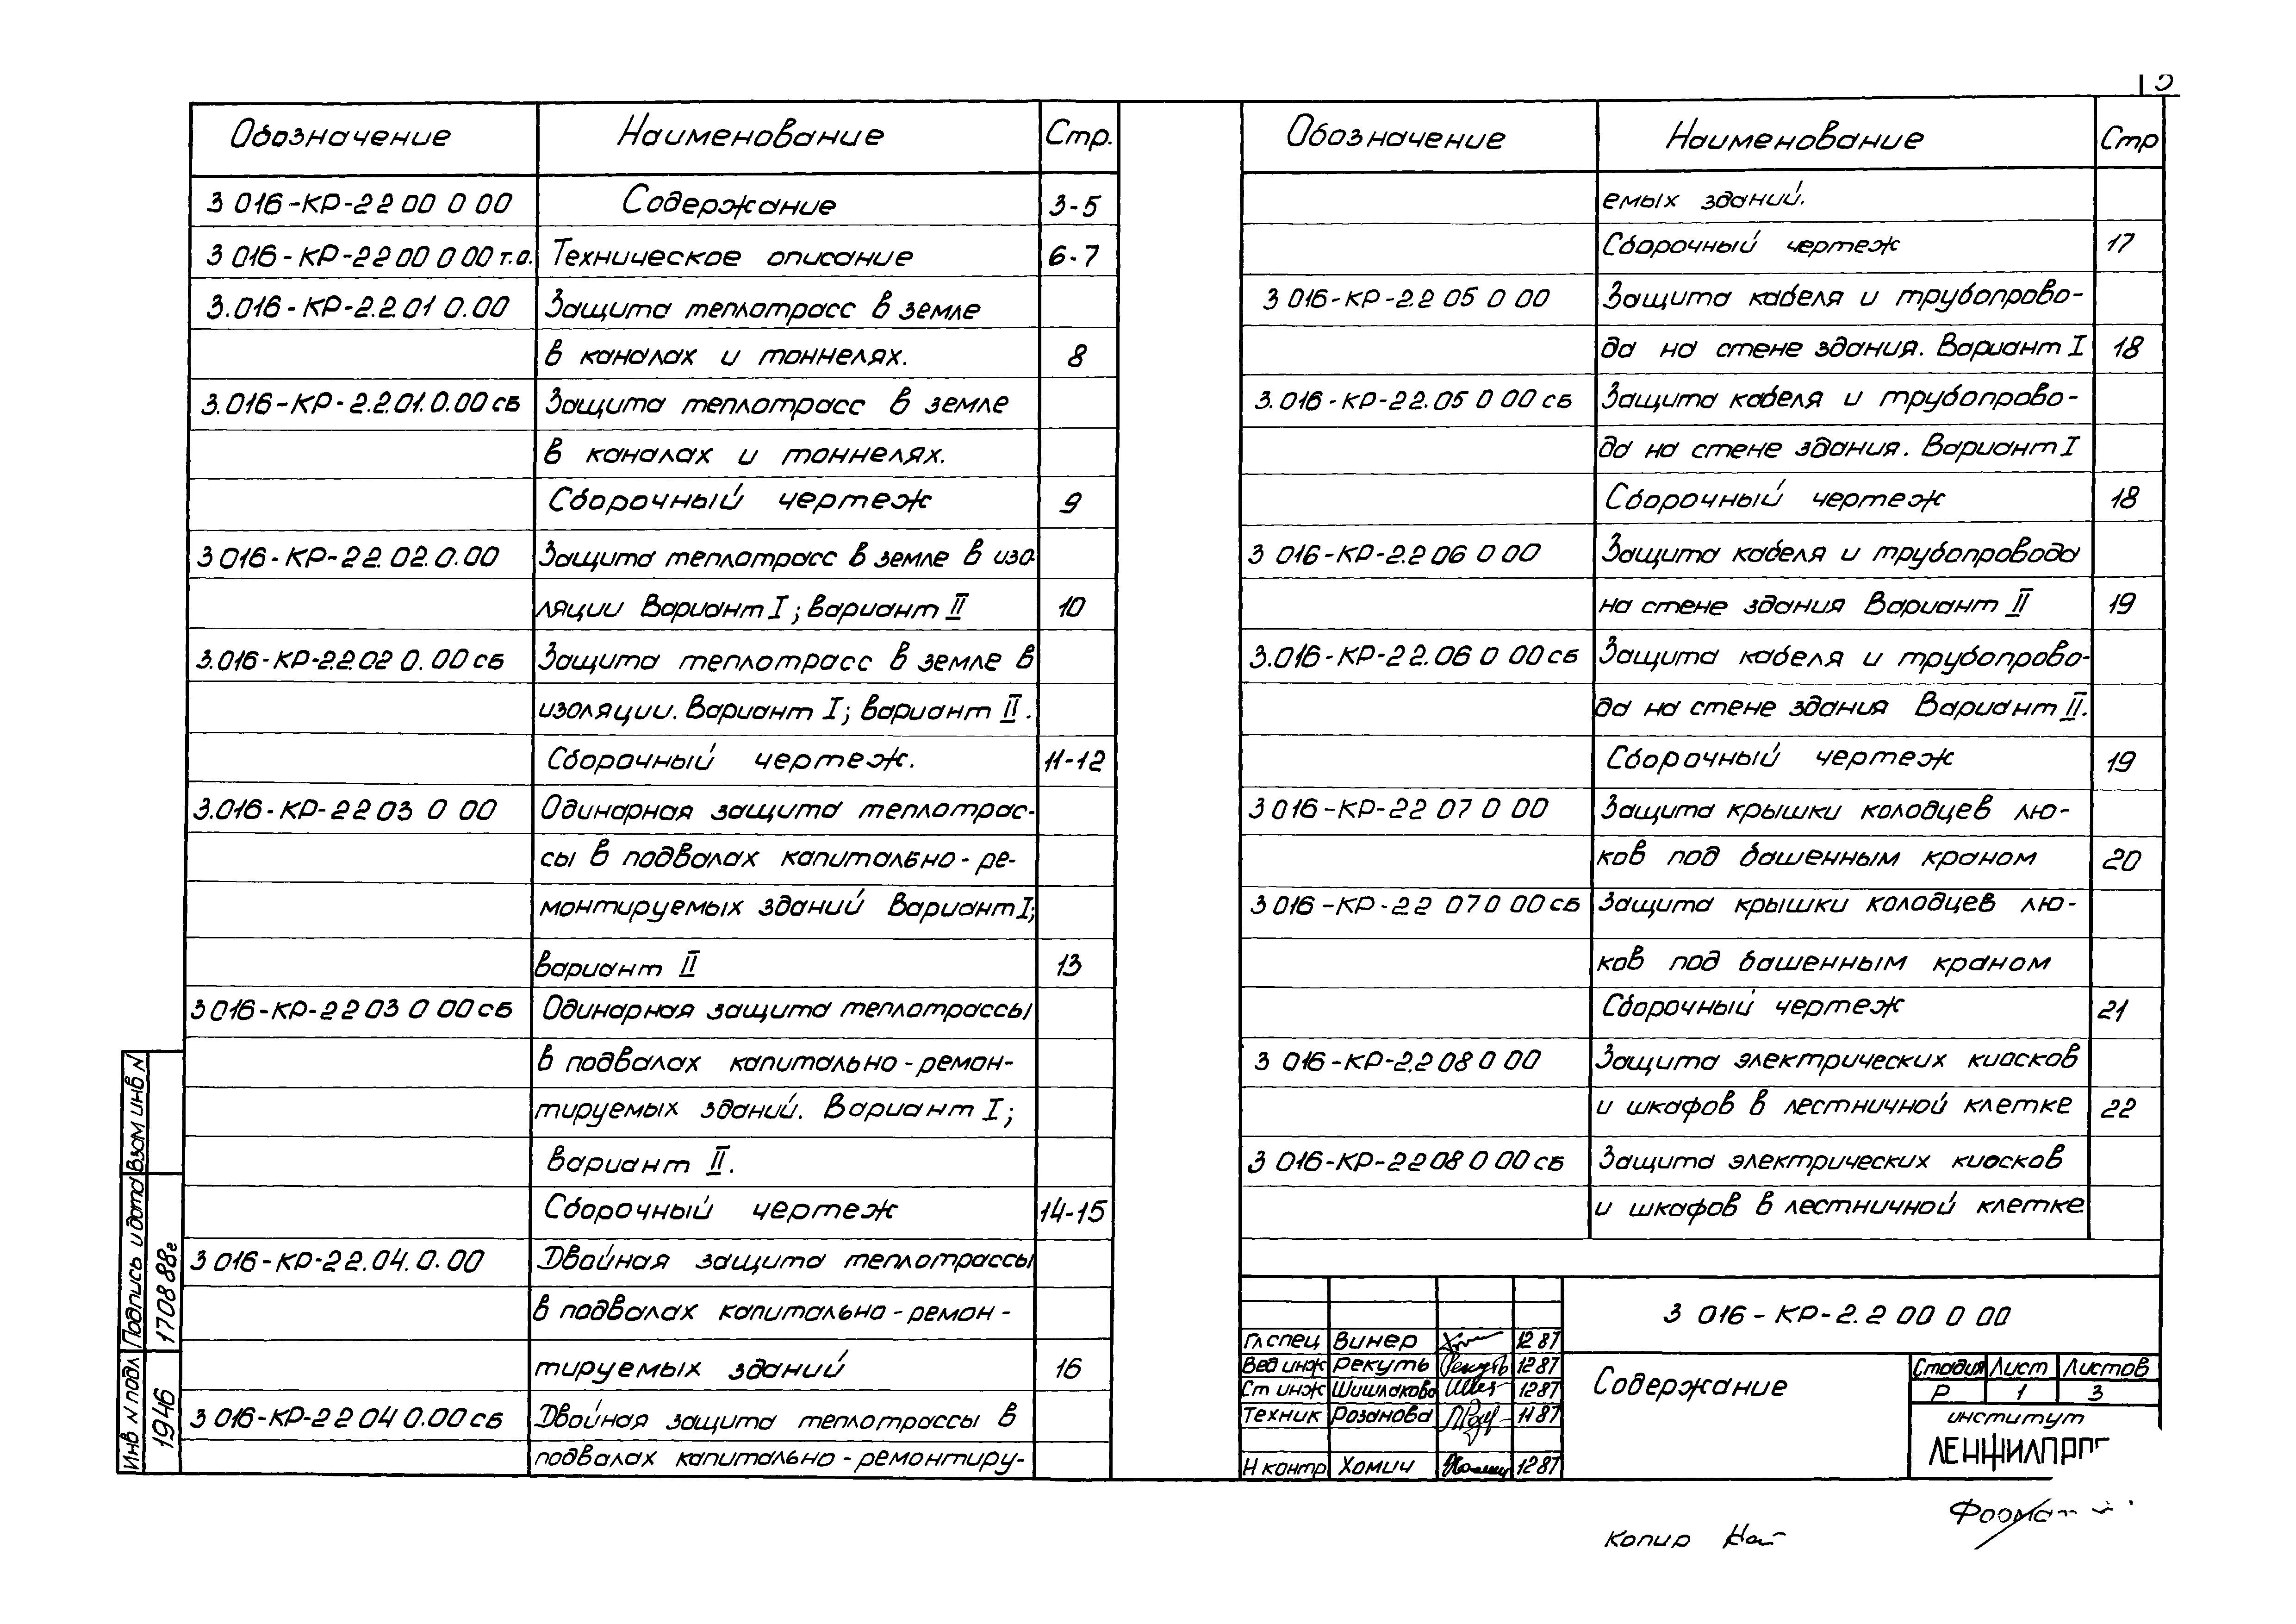 Обозначение Наименование Стр.
3 016-КР-2 2 00 0 00 Содержание 3-5
3 016-КР-2 2 00 0 00 т.о. Техническое описание 6-7
3.016-КР-2.2.01 0.00 Защита теплотрасс в земле
в каналах и тоннелях. 8
3.016-КР-2.2.01.0.00 сб Защита теплотрасс в земле
в каналах и тоннелях.
Сборочный чертеж 9
3 016-КР-2 2. 02.0.00 Защита теплотрасс в земле в изо
ляции Вариант I; вариант II 10
3.016-КР-2.2.02 0.00 сб Защита теплотрасс в земле в
изоляции. Вариант I; вариант II.
Сборочный чертеж. 11-12
3.016-КР-2 2 03 0 00 Одинарная защита теплотрас-
сы в подвалах капитально-ре-
монтируемых зданий Вариант I;
вариант II 13
3 016-КР-2 2 03 0 00 сб Одинарная защита теплотрассы
в подвалах капитально-ремон-
тируемых зданий. Вариант I;
вариант II.
Сборочный чертеж 14-15
3 016-КР-2 2.04.0.00 Двойная защита теплотрассы
в подвалах капитально-ремон-
тируемых зданий 16
3 016-КР-2 2 04 0.00 сб Двойная защита теплотрассы в
подвалах капитально-ремонтиру-
Обозначение Наименование Стр
емых зданий.
Сборочный чертеж 17
3 016-КР-2.2 05 0 00 Защита кабеля и трубопрово-
да на стене здания. Вариант I 18
3.016-КР-2 2.05 0 00 сб Защита кабеля и трубопрово-
да на стене здания. Вариант I
Сборочный чертеж 18
3 016-КР-2.2 06 0 00 Защита кабеля и трубопровода
на стене здания Вариант II 19
3.016-КР-2 2.06 0 00 сб Защита кабеля и трубопрово-
да на стене здания Вариант II.
Сборочный чертеж 19
3 016-КР-2 2 07 0 00 Защита крышки колодцев лю-
ков под башенным краном 20
3 016-КР-2 2 07 0 00 сб Защита крышки колодцев лю-
ков под башенным краном
Сборочный чертеж 21
3 016-КР-2.2 08 0 00 Защита электрических киосков
и шкафов в лестничной клетке 22
3 016-КР-2 2 08 0 00 сб Защита электрических киосков
и шкафов в лестничной клетке
3 016-КР-2.2 00 0 00
Гл спец Винер 12 87
Вед инж Рекуть 12 87
Ст инж Шишлаково 12 87
Техник Розанова 11 87
Н контр Хомич 12 87
Содержание
Стадия Лист Листов
Р 1 3
институт
ЛЕНЖИЛПРО
Копир
Формат
Инв N подл Подпись и дата Взам инв N
1946 17 08 88г